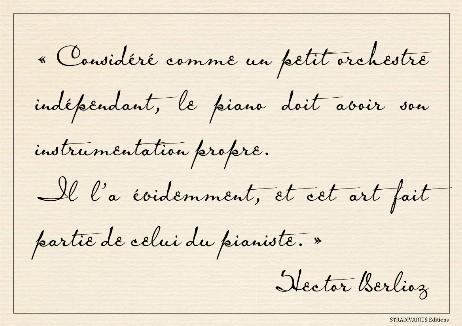 « Considéré comme un petit orchestre
indépendant, le piano doit avoir son
instrumentation propre.
Il l'a évidemment, et cet art fait
partie de celui du pianiste. »
Hector Berlioz
STRADIVARIUS Editions